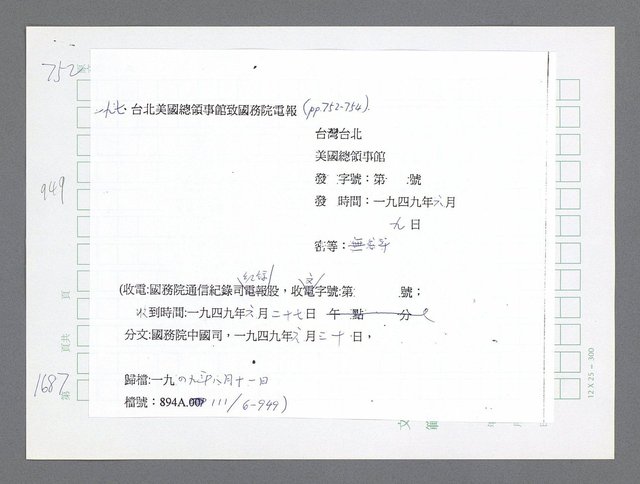 752
一九七、台北美國總領事館致國務院電報(pp.752-754).
台灣台北
美國總領事館
發 字號：第 號
949
發 時間：一九四九年六月
九日
密等：無密等
紅錄 文
(收電:國務院通信紀錄司電報股，收電字號:第 號；
收到時間:一九四九年六月二十七日 午 點 分
頁
分文:國務院中國司，一九四九年六月二十日，
頁共
歸檔:一九四九年八月十一日
1687
第
檔號：894A.00 111/6-949)
12 X 25 = 300